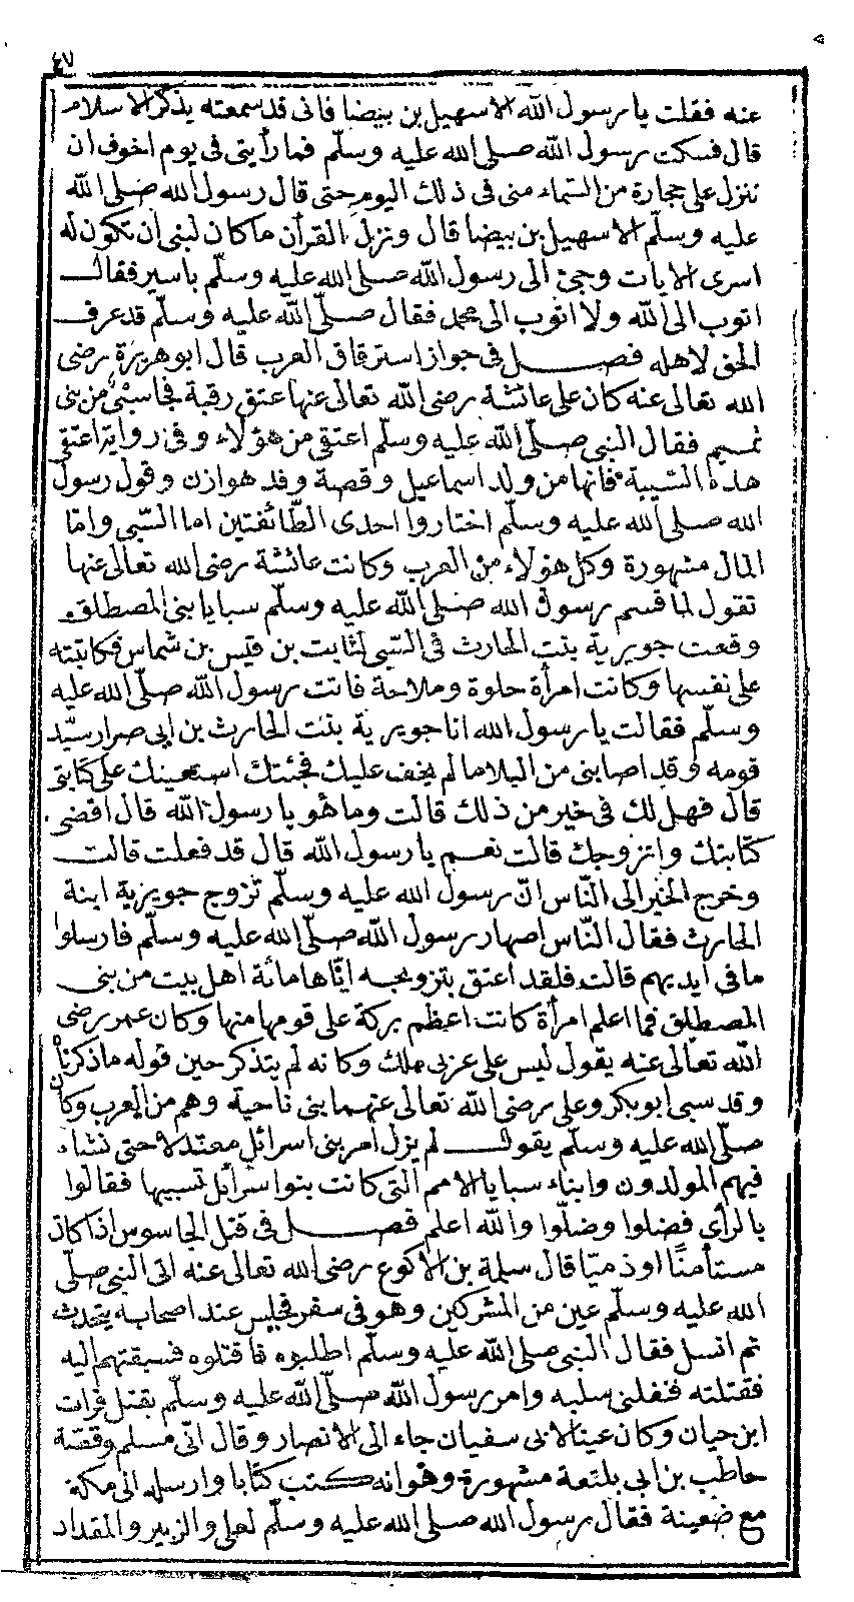 ٤٧
عنه فقلت يا رسول الله الا سهيل بن بيضا فانى قد سمعته يذكر الاسلام
قال فسكت رسول الله صلى الله عليه وسلّم فما رأيتى فى يوم اخوف ان
تنزل على حجارة من السّماء منى فى ذلك اليوم حتى قال رسول الله صلى الله
عليه وسلّم الا سهيل بن بيضا قال ونزل القرآن ما كان لبنى ان تكون له
اسرى الايات وجئ الى رسول الله صلى الله عليه وسلّم باسير فقال
اتوب الى الله ولا اتوب الى محمد فقال صلّى الله عليه وسلّم قد عرف
الحق لاهله فصل فى جواز استرقاق العرب قال ابو هريرة رضى
الله تعالى عنه كان على عائشة رضى الله تعالى عنها عتق رقبة فجا سبى من بنى
تميم فقال النبى صلّى الله عليه وسلّم اعتقى من هؤلاء وفى رواية اعتقى
هذه السّبية فانها من ولد اسماعيل وقصة وفد هوازن وقول رسول
الله صلى الله عليه وسلّم اختاروا احدى الطّائفتين اما السّبى وامّا
المال مشهورة وكل هؤلاء من العرب وكانت عائشة رضى الله تعالى عنها
تقول لما قسم رسول الله صلى الله عليه وسلّم سبايا بنى المصطلق
وقعت جويرية بنت الحارث فى السّبى لثابت بن قيس بن شماس فكاتبته
على نفسها وكانت امرأة حلوة وملاحة فاتت رسول الله صلّى الله عليه
وسلّم فقالت يا رسول الله انا جويرية بنت الحارث بن ابى صرار سيّد
قومه وقد اصابنى من البلا ما لم يخف عليك فجئتك استعينك على كتابتى
قال فهل لك فى خير من ذلك قالت وما هو يا رسول الله قال اقضى
كتابتك واتزوجك قالت نعم يا رسول الله قال قد فعلت قالت
وخرج الخبر الى النّاس انّ رسول الله عليه وسلّم تزوج جويرية ابنة
الحارث فقال النّاس اصهار رسول الله صلّى الله عليه وسلّم فارسلوا
ما فى ايديهم قالت فلقد اعتق بتزويجه ايّاها مائة اهل بيت من بنى
المصطلق فما اعلم امرأة كانت اعظم بركة على قومها منها وكان عمر رضى
الله تعالى عنه يقول ليس على عربى ملك وكانه لم يتذكر حين قوله ما ذكرناه
وقد سبى ابو بكر وعلى رضى الله تعالى عنهما بنى ناحية وهم من العرب وكان
صلّى الله عليه وسلّم يقول لم يزل امر بنى اسرائل معتدلا حتى نشاء
فيهم المولدون وابناء سبايا الامم التى كانت بنوا سرأئل تسبيها فقالوا
بالرأي فضلوا وضلّوا والله اعلم فصل فى قتل الجاسوس اذا كان
مستأمنًا او ذميّا قال سلمة بن الاكوع رضى الله تعالى عنه اتى النبى صلّى
الله عليه وسلّم عين من المشركين وهو فى سفر فجلس عند اصحابه يتحدث
ثم انسل فقال النبى صلى الله عليه وسلّم اطلبوه فاقتلوه فسبقتهم اليه
فقتلته فنفلنى سلبه وامر رسول الله صلّى الله عليه وسلّم بقتل فرات
ابن حيان وكان عينا لابى سفيان جاء الى الانصار وقال انّى مسلم وقصّة
حاطب بن ابى بلتعة مشهورة وهو انه كتب كتابا وارسله الى مكة
مع ضعينة فقال رسول الله صلى الله عليه وسلّم لعلى والزبير والمقداد